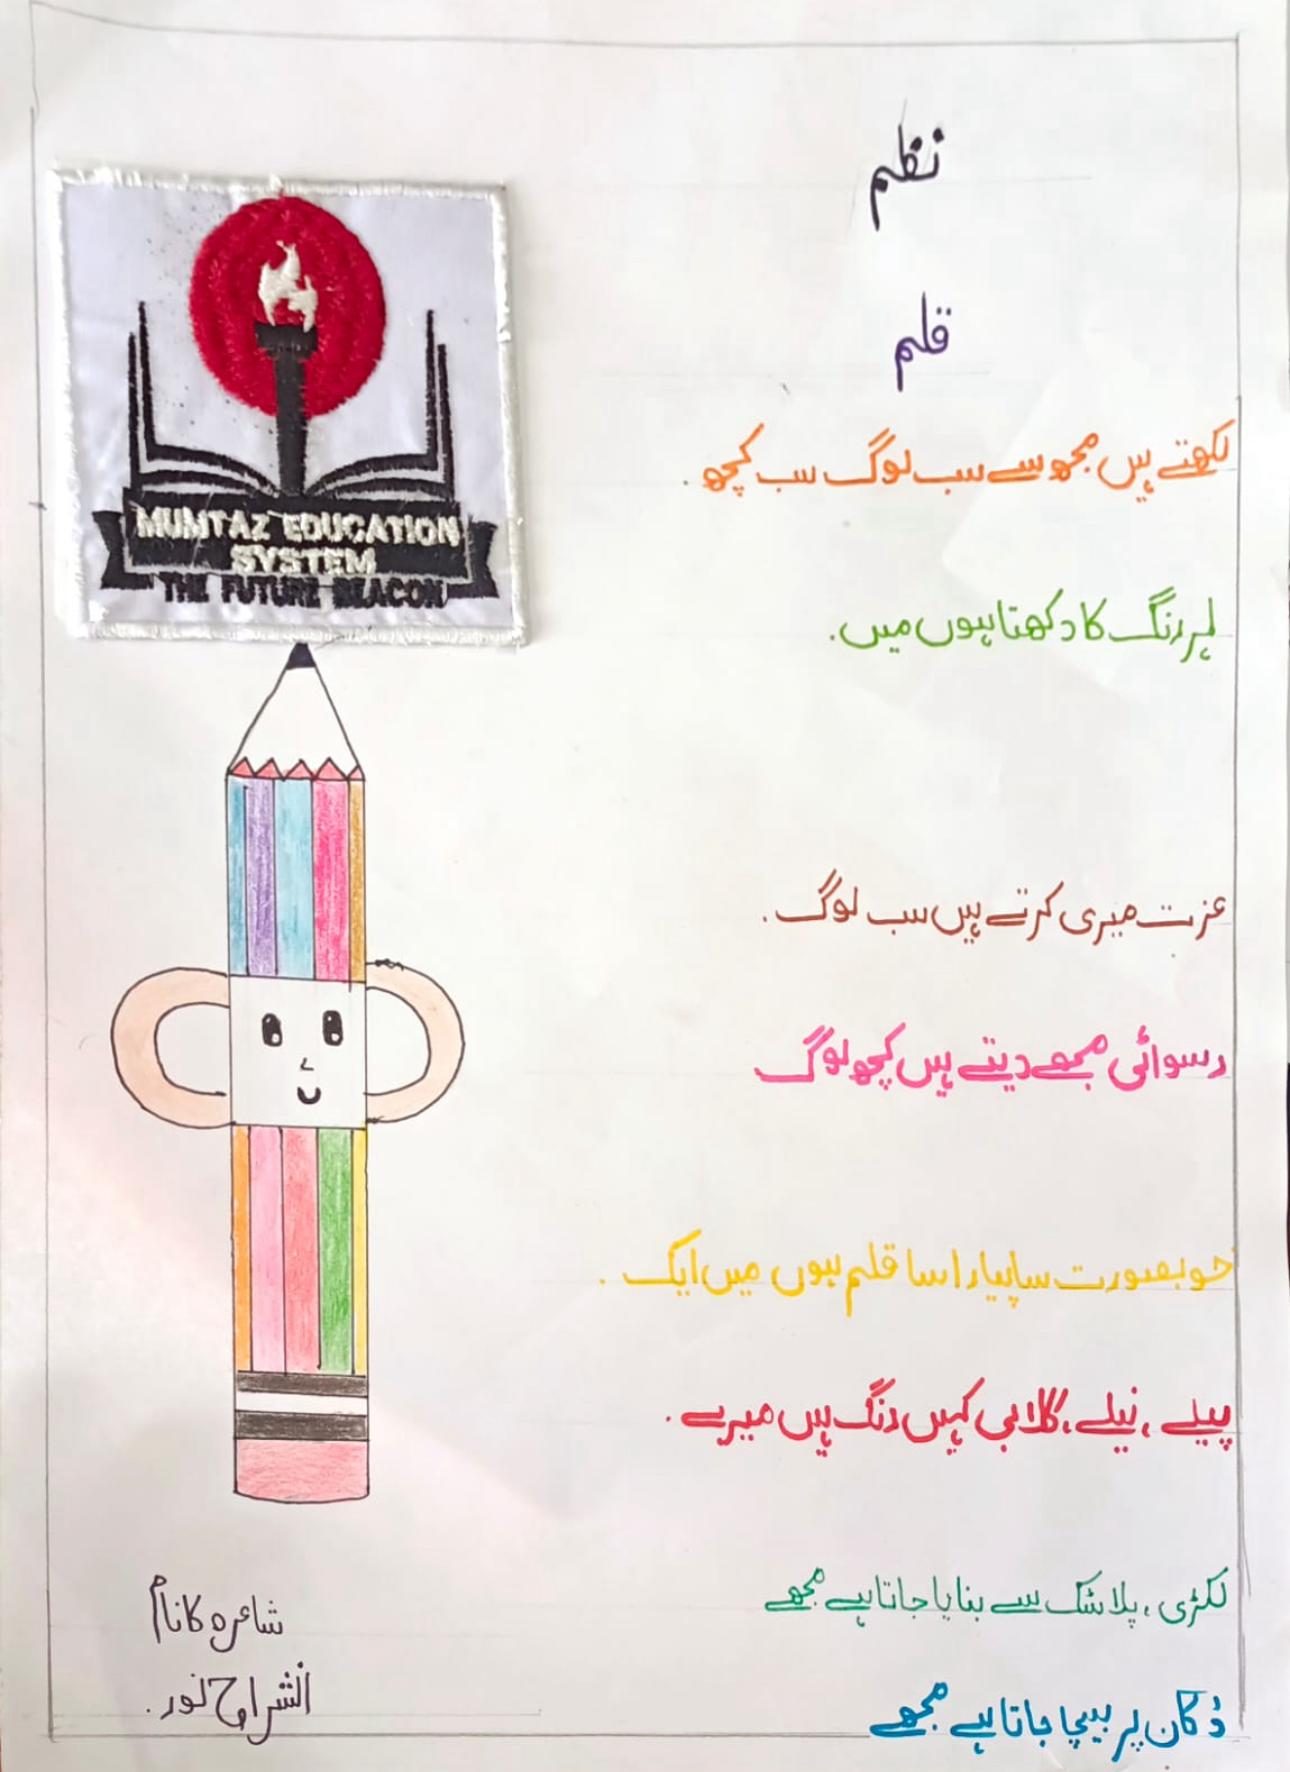 نظم
قلم
لکھتے ہیں مجھ سے سب لوگ سب کچھ.
ہر رنگ کا دکھتا ہوں میں.
عزت میری کرتے ہیں سب لوگ.
رسوائی مجھے دیتے ہیں کچھ لوگ
خوبصورت سا پیارا سا قلم ہوں میں ایک .
پیلے ، نیلے ، گلابی کہیں رنگ ہیں میرے .
لکڑی ، پلاشک سے بنایا جاتا ہے مجھے
دُکان پر بیچا جاتا ہے مجھے
MUMTAZ EDUCATION
SYSTEM
THE FUTURE BEACON
شاعرہ کا نام
انشراح نور .